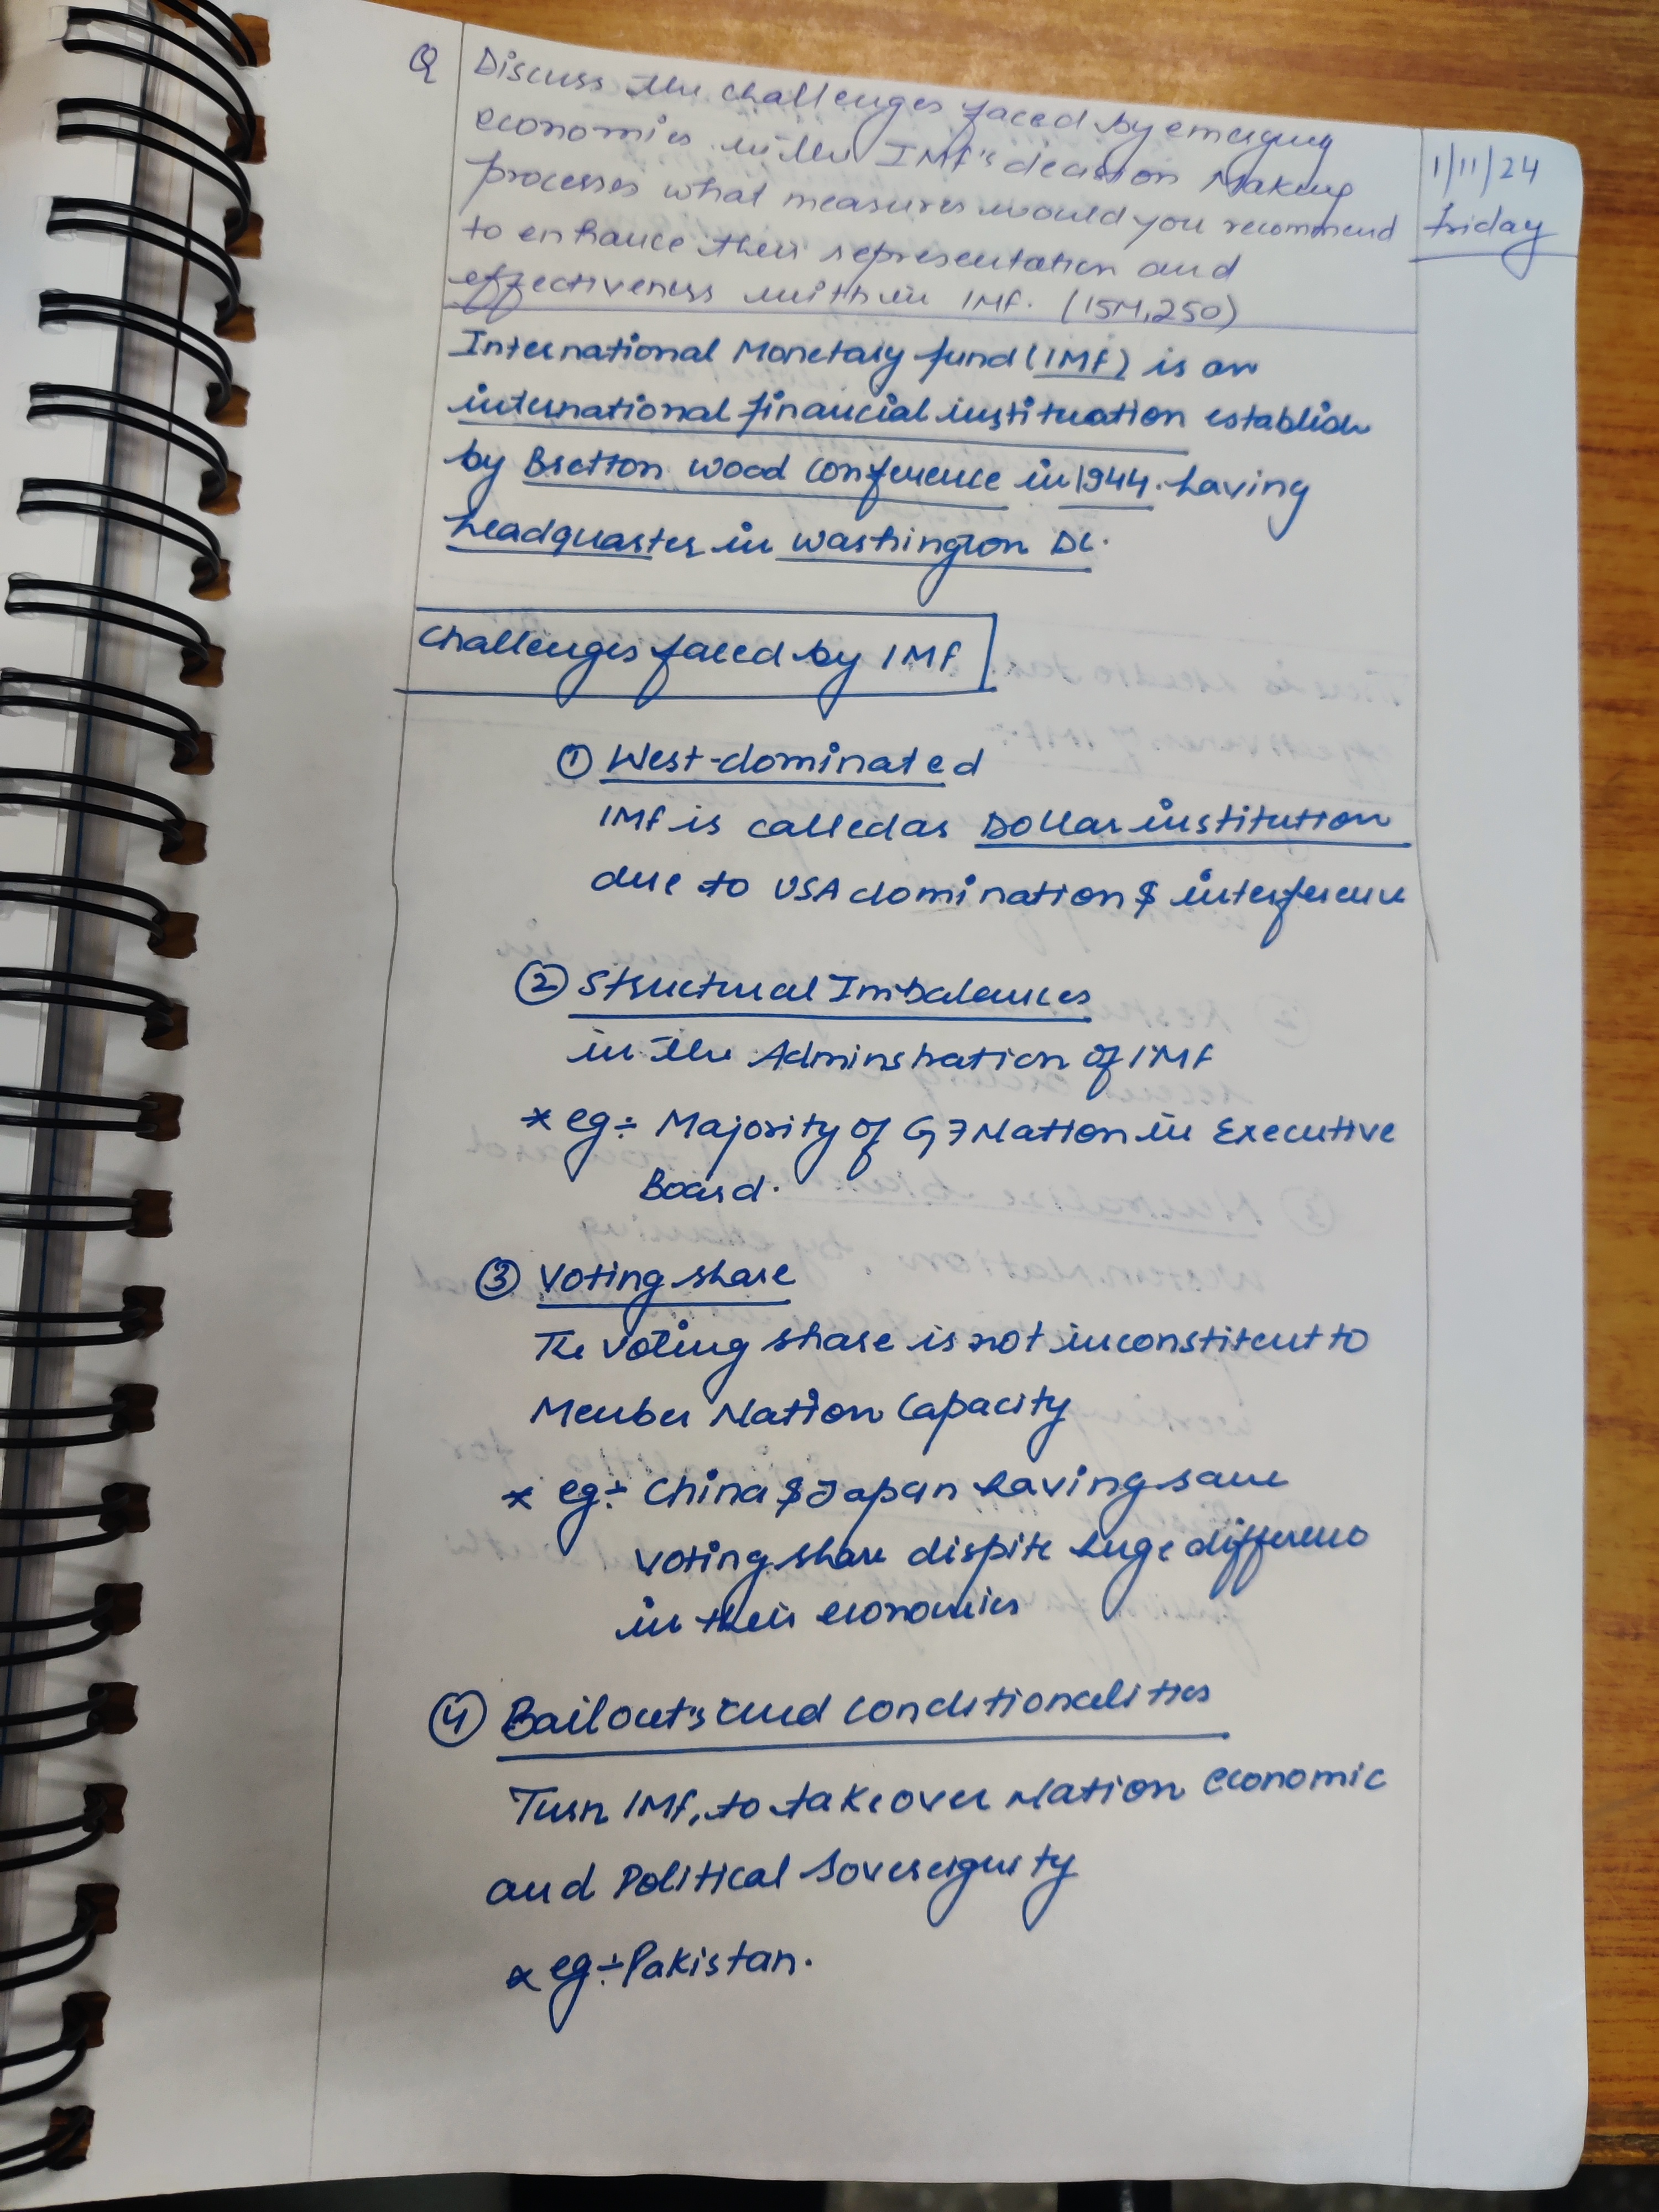 Q Discuss the challenges faced by emerging
economies in the IMF's decision Making
processes what measures would you recommend
to enhance their representation and
effectiveness within IMF. (15M,250)
1/11/24
friday
International Monetary fund (IMF) is an
international financial instituation establish
by Bretton wood conference in 1944. having
headquarter in washington DC.
Challenges faced by IMF
① West-dominated
IMF is called as Dollar institution
due to USA domination & interference
② Structural Imbalances
in the Adminstration of IMF
* eg÷ Majority of G7 Nation in Executive
Board.
③ Voting share
The voting share is not inconstitent to
Member Nation Capacity
* eg÷ China & Japan having same
voting share dispite huge difference
in their economies
④ Bailout's and conditionalities
Turn IMF, to takeover Nation economic
and Political Sovereignity
* eg÷ Pakistan.